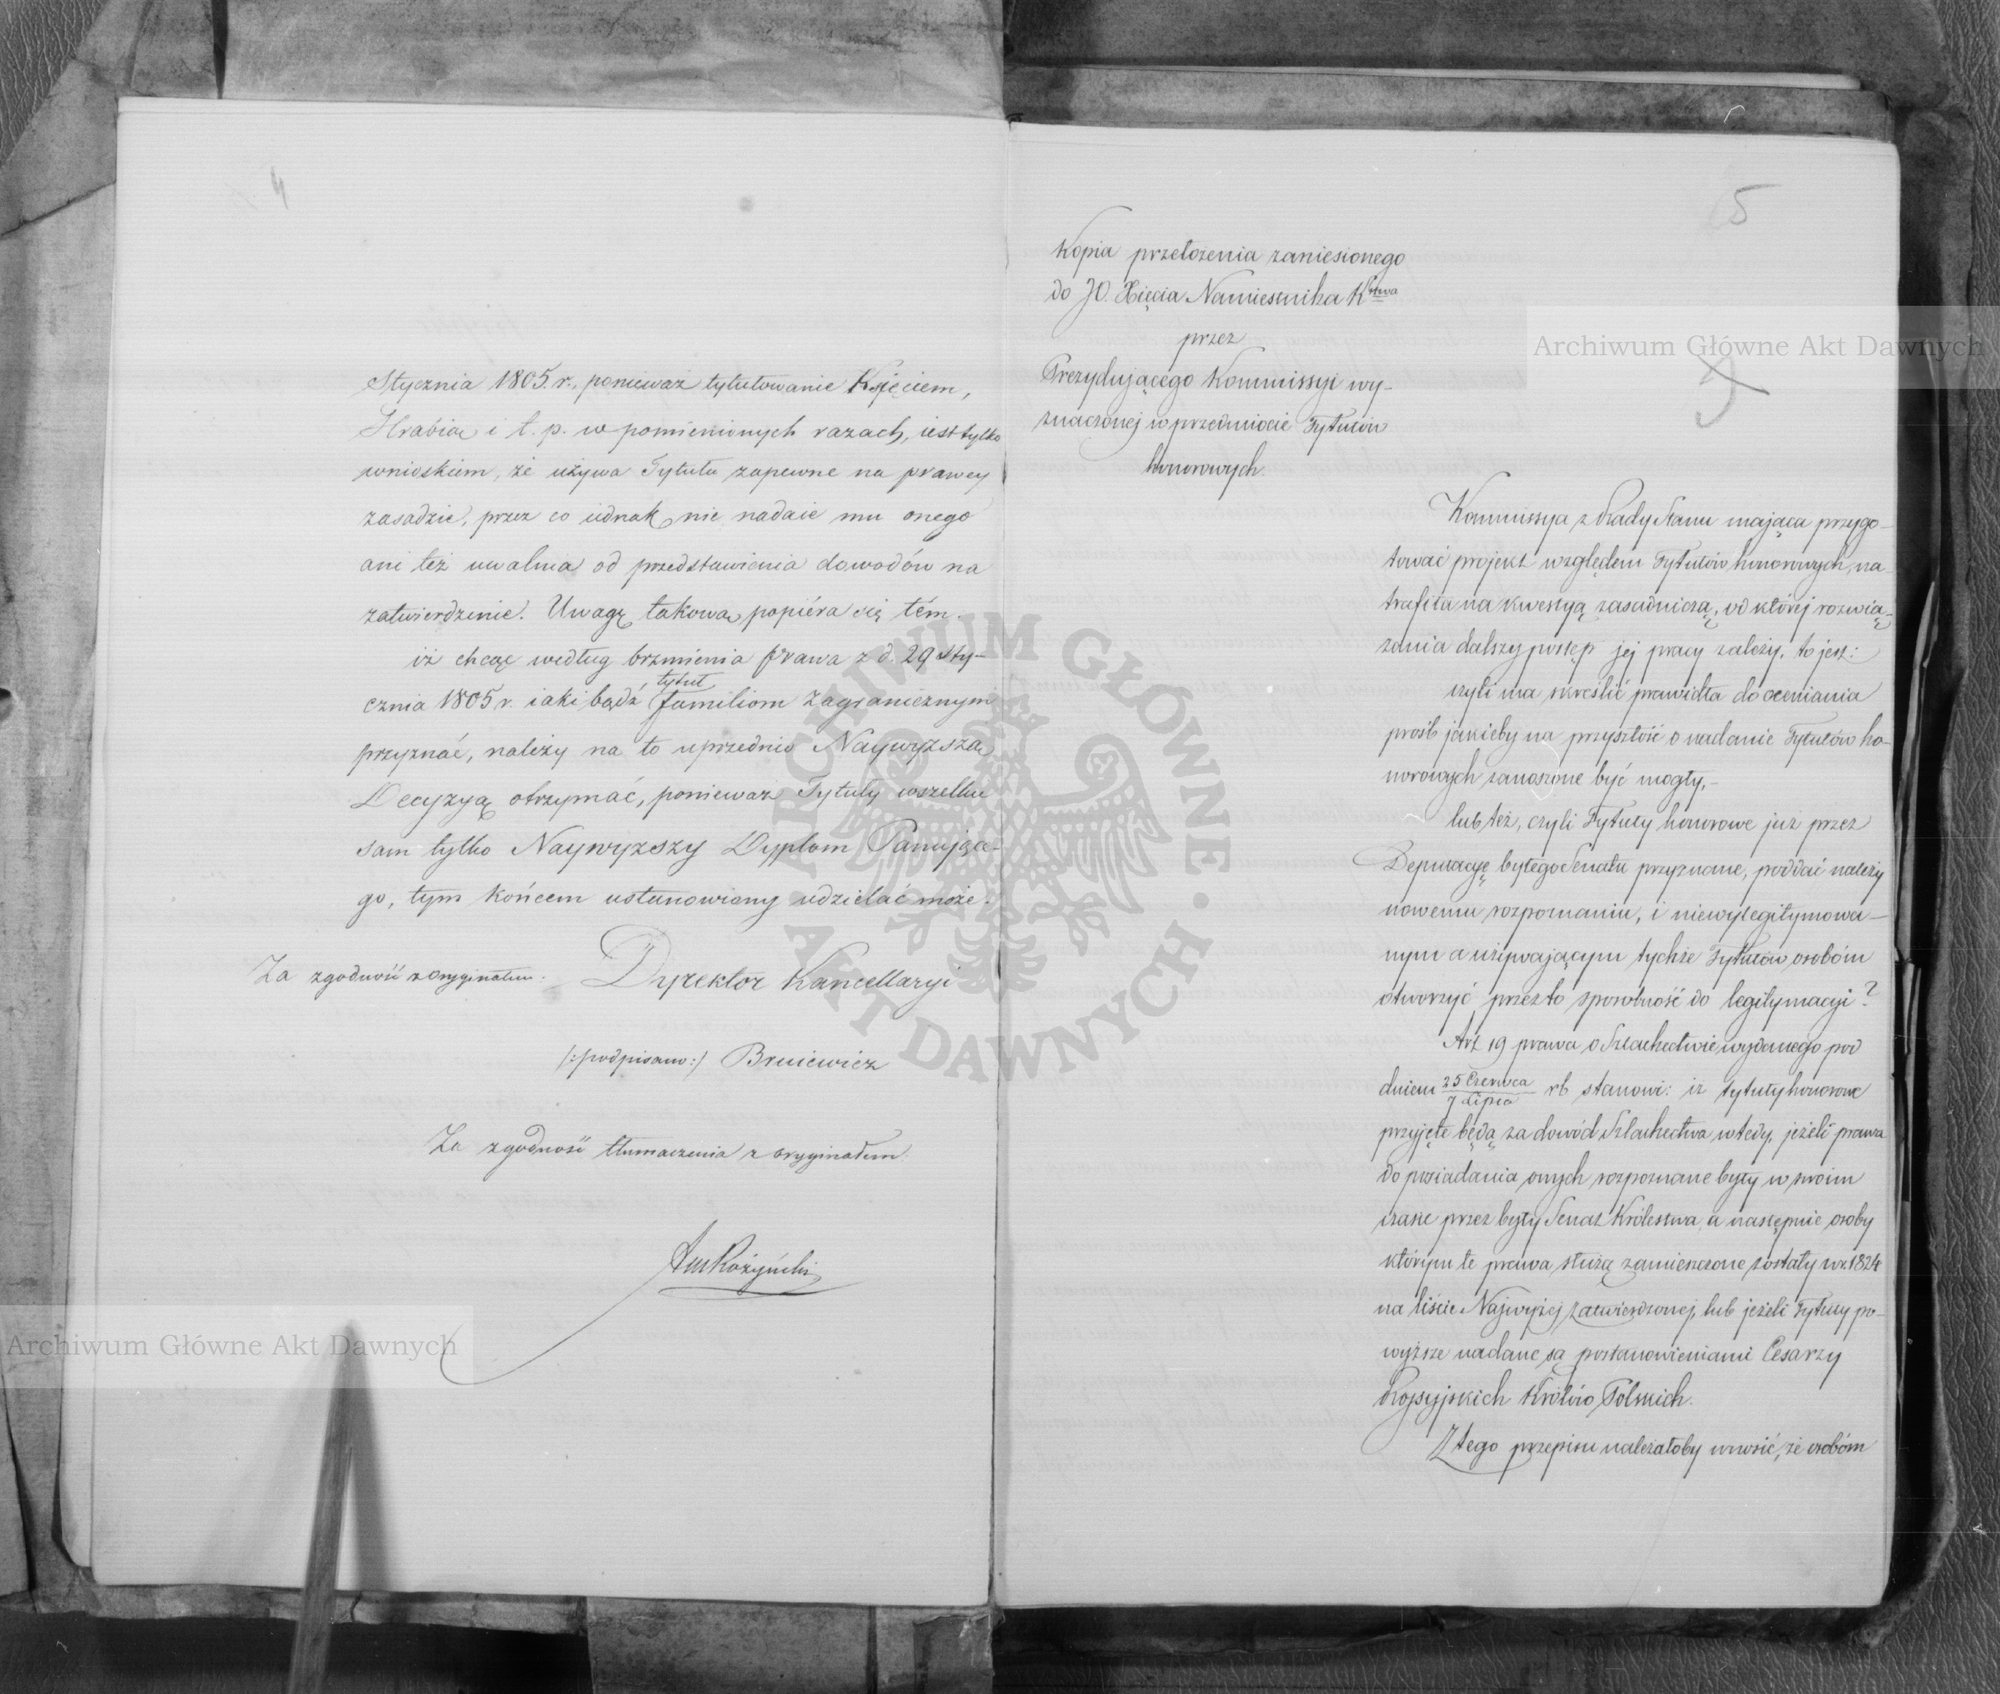 4
Stycznia 1805. r., ponieważ tytułowanie Xięciem,
Hrabią i t. p. w pomienionych razach, iest tylko
wnioskiem, że używa Tytułu zapewne na prawey
zasadzie, przez co iednak nie nadaie mu onego
ani też uwalnia od przedstawienia dowodów na
zatwierdzenie. Uwagę takową popiéra się tém.
iż chcąc według brzmienia prawa z d. 29 Sty-
cznia 1805 r. iaki bądź tytuł familiom Zagranicznym
przyznać, należy na to uprzednio Naywyższą
Decyzyą otrzymać, ponieważ Tytuły wszelkie
sam tylko Naywyższy Dyplom Panujące-
go, tym końcem ustanowiony udzielać może.
Za zgodność z oryginałem: Dyrektor Kancellaryi
/:podpisano:/ Brniewicz
Za zgodność tłumaczenia z oryginałem.
Różyński
5
9
Kopia przełożenia zaniesionego
do JO. Xięcia Namiestnika Kstwa
przez
Prezydującego Kommissyi wy-
znaczonej w przedmiocie Tytułów
honorowych.
Kommissya z Rady Stanu mająca przygo-
tować projekt względem Tytułów honorowych, na-
trafiła na kwestyą zasadniczą, od której rozwią-
zania dalszy postęp jej pracy zależy, to jest:
czyli ma skreślić prawidła do oceniania
prośb jakieby na przyszłość o nadanie Tytułów ho-
norowych zanoszone być mogły,-
lub też, czyli Tytuły honorowe już przez
Deputacyę byłego Senatu przyznane, poddać należy
nowemu rozpoznaniu, i niewylegitymowa-
nym a używającym tychże Tytułów osobóm
otworzyć przez to sposobność do legitymacyi?
Art 19 prawa o Szlachectwie wydanego pod
dniem 25 Czerwca / 7 Lipca rb stanowi: iż tytuły honorowe
przyjęte będą za dowód Szlachectwa wtedy, jeżeli prawa
do posiadania onych rozpoznane były w swoim
czasie przez były Senat Królestwa, a następnie osoby
którym te prawa służą zamieszczone zostały w r. 1824
na liście Najwyżej zatwierdzonej, lub jeżeli Tytuły po-
wyższe nadane są postanowieniami Cesarzy
Rossyjskich Królów Polskich.
Z tego przepisu należałoby wnosić, że osobóm
Archiwum Główne Akt Dawnych
Archiwum Główne Akt Dawnych
ARCHIWUM GŁÓWNE AKT DAWNYCH